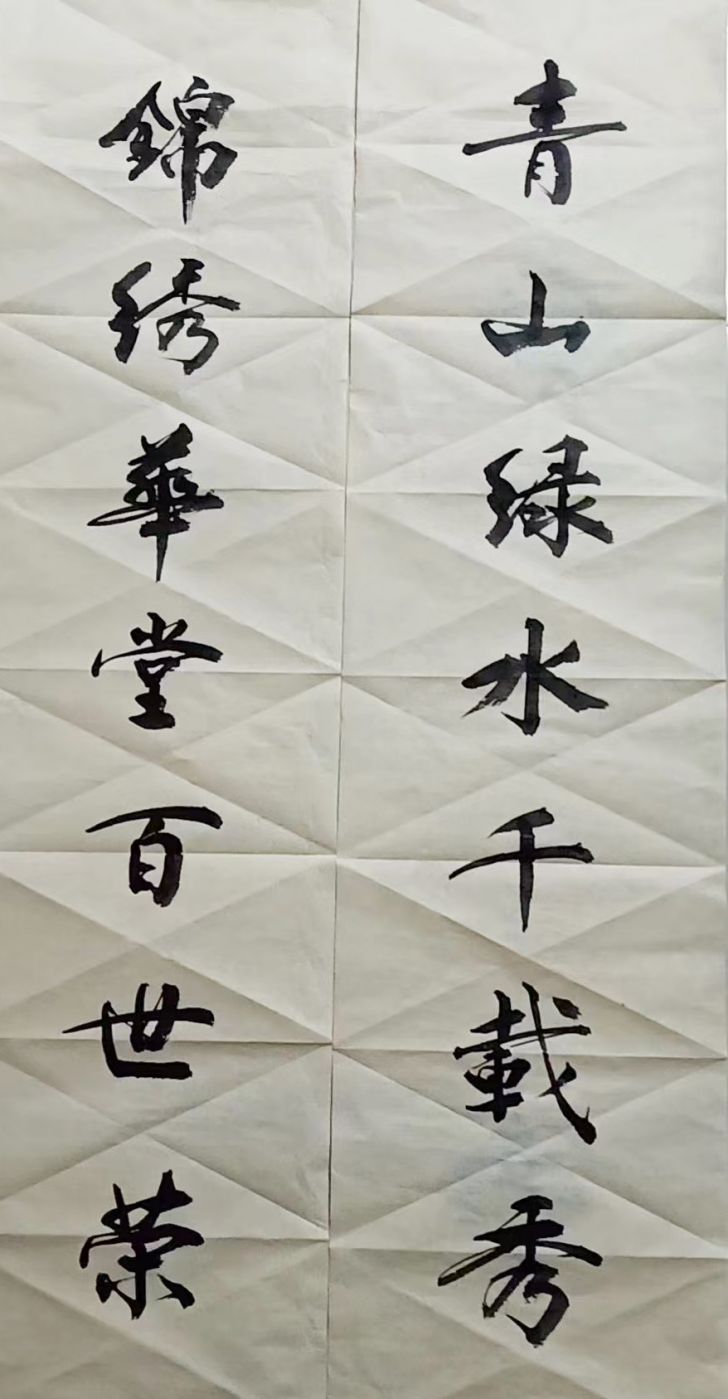 青山緑水千載秀
錦绣華堂百世荣